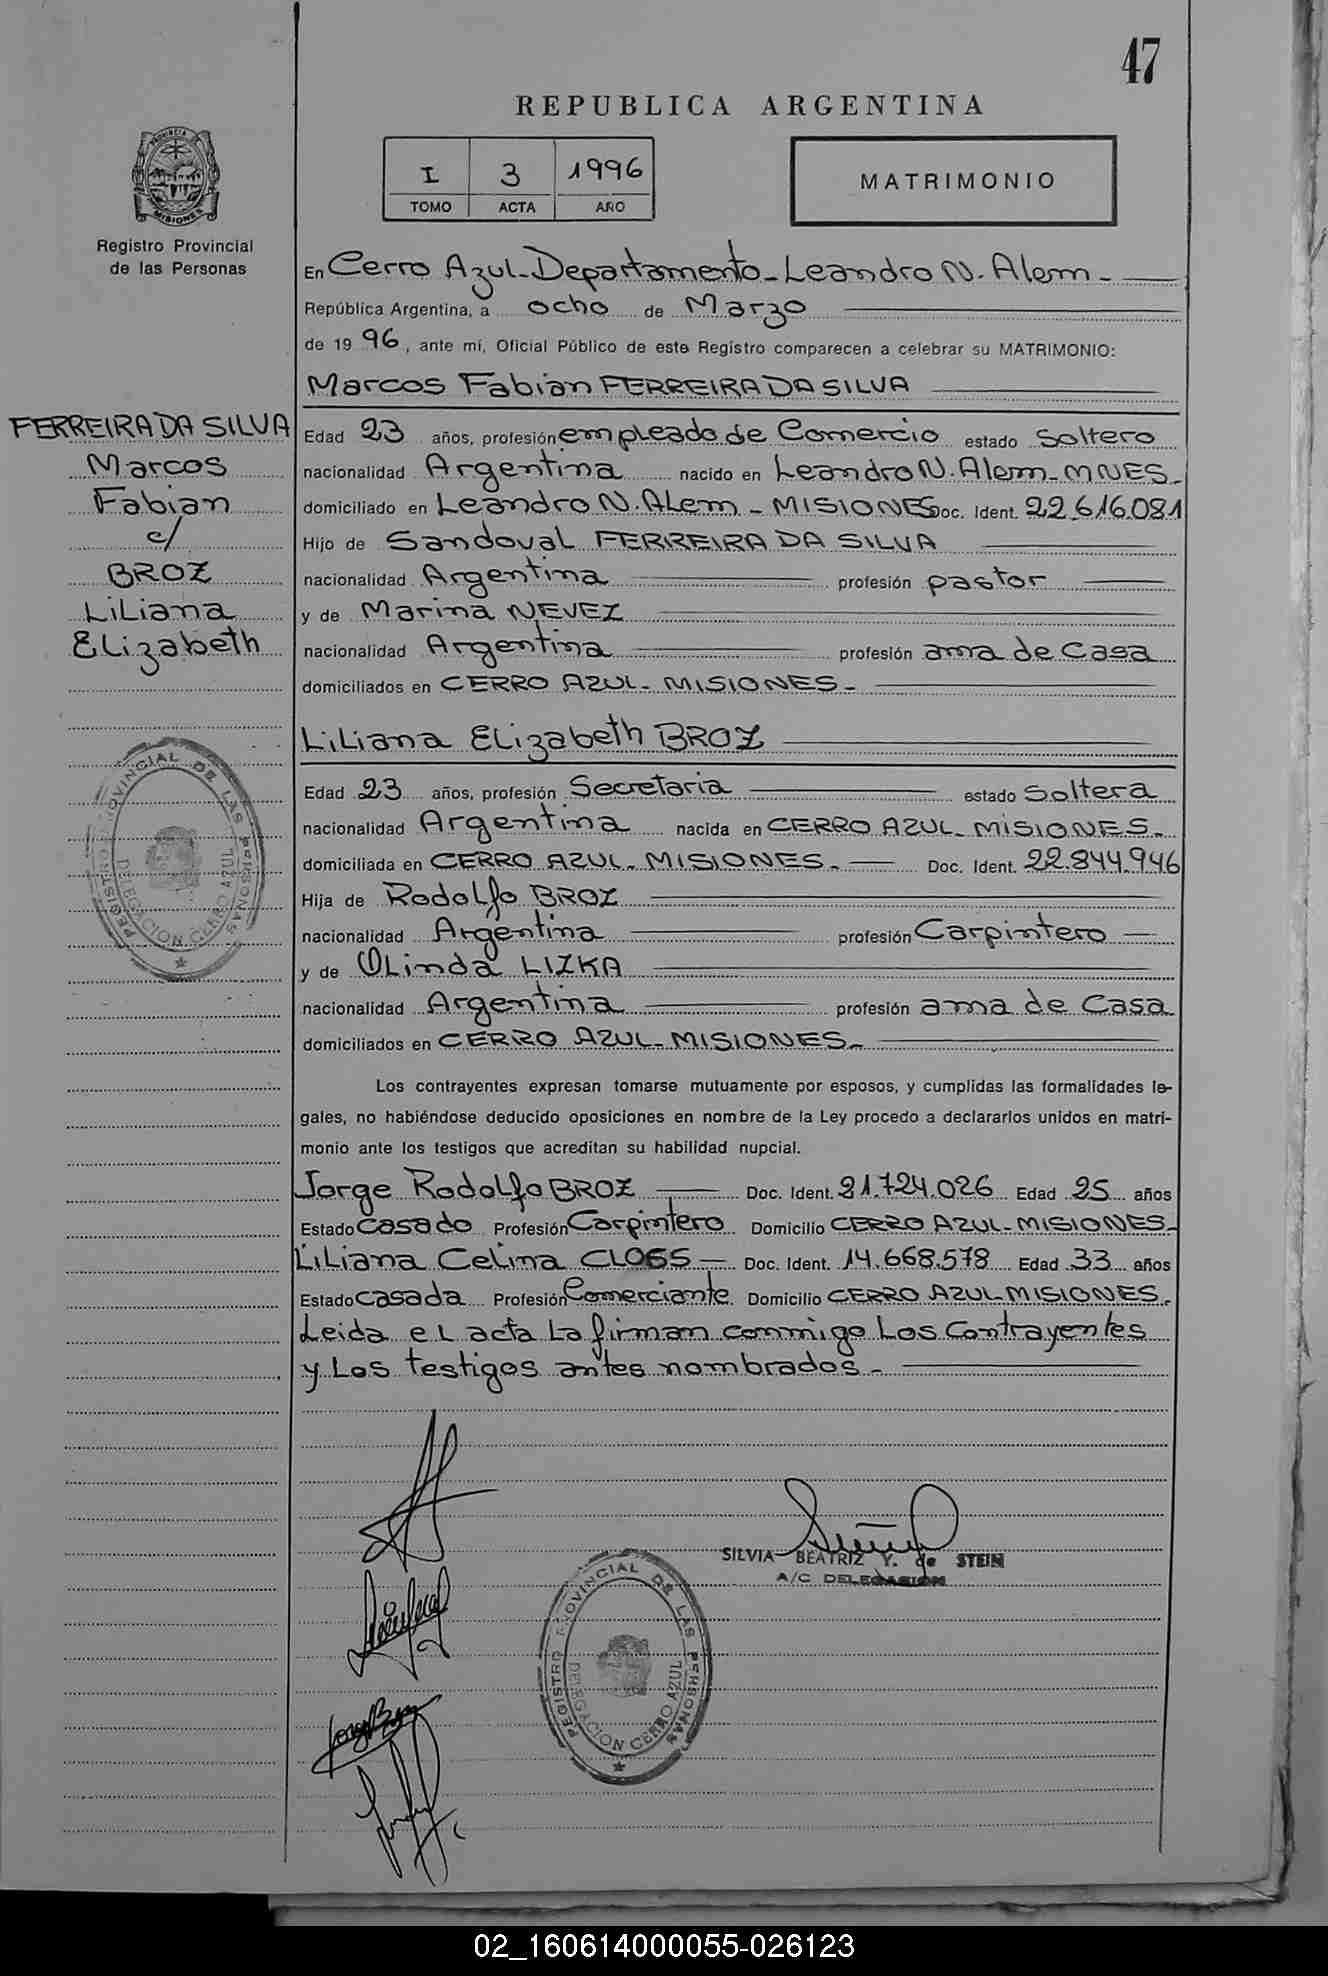 47
REPUBLICA ARGENTINA
PROVINCIA DE
MISIONES
Registro Provincial
de las Personas
I 3 1996
TOMO ACTA AÑO
MATRIMONIO
En Cerro Azul - Departamento - Leandro N. Alem -
República Argentina, a ocho de Marzo
de 19 96, ante mí, Oficial Público de este Registro comparecen a celebrar su MATRIMONIO:
Marcos Fabian FERREIRA DA SILVA
FERREIRA DA SILVA
Marcos
Fabian
c/
BROZ
Liliana
Elizabeth
Edad 23 años, profesión empleado de Comercio estado Soltero
nacionalidad Argentina nacido en Leandro N. Alem - MNES -
domiciliado en Leandro N. Alem - MISIONES Doc. Ident. 22.616.081
Hijo de Sandoval FERREIRA DA SILVA
nacionalidad Argentina profesión pastor
y de Marina NEVEZ
nacionalidad Argentina profesión ama de Casa
domiciliados en CERRO AZUL - MISIONES -
Liliana Elizabeth BROZ
Edad 23 años, profesión Secretaria estado Soltera
nacionalidad Argentina nacida en CERRO AZUL - MISIONES -
domiciliada en CERRO AZUL - MISIONES - Doc. Ident. 22.844.946
Hija de Rodolfo BROZ
nacionalidad Argentina profesión Carpintero
y de Olinda LIZKA
nacionalidad Argentina profesión ama de Casa
domiciliados en CERRO AZUL - MISIONES -
REGISTRO PROVINCIAL DE LAS PERSONAS
DELEGACION CERRO AZUL
Los contrayentes expresan tomarse mutuamente por esposos, y cumplidas las formalidades le-
gales, no habiéndose deducido oposiciones en nombre de la Ley procedo a declararlos unidos en matri-
monio ante los testigos que acreditan su habilidad nupcial.
Jorge Rodolfo BROZ Doc. Ident. 21.724.026 Edad 25 años
Estado Casado Profesión Carpintero Domicilio CERRO AZUL - MISIONES -
Liliana Celina CLOSS - Doc. Ident. 14.668.578 Edad 33 años
Estado casada Profesión Comerciante Domicilio CERRO AZUL - MISIONES.
Leida el acta la firman conmigo Los Contrayentes
y Los testigos antes nombrados -
SILVIA BEATRIZ Y. de STEIN
A/C DELEGACION
REGISTRO PROVINCIAL DE LAS PERSONAS
DELEGACION CERRO AZUL
02_160614000055-026123